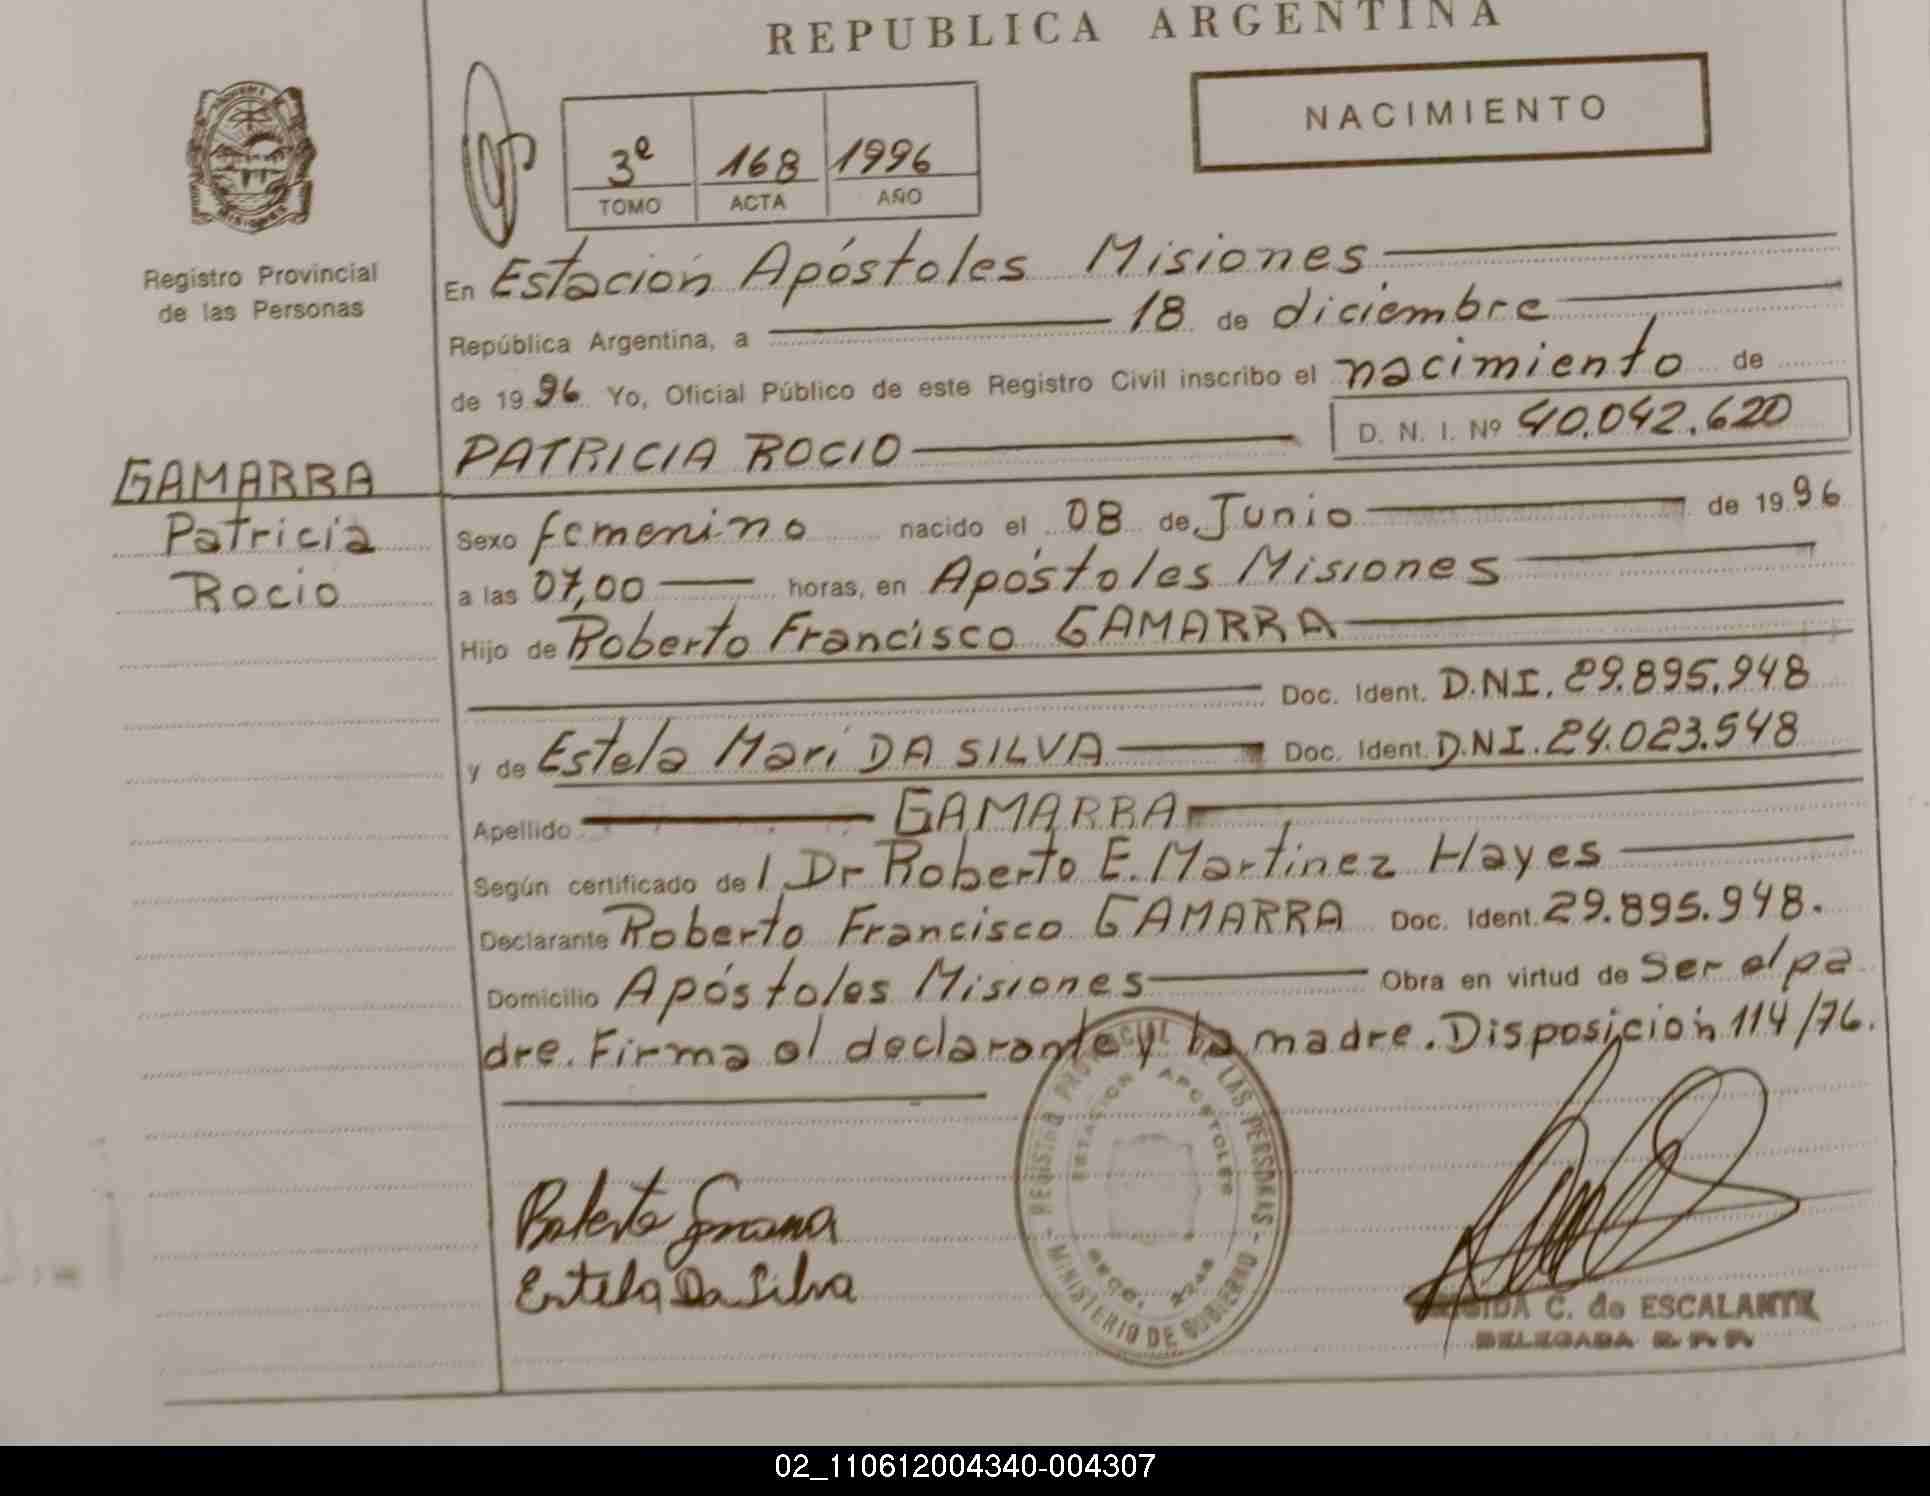 REPUBLICA ARGENTINA
NACIMIENTO
3º 168 1996
TOMO ACTA AÑO
Registro Provincial
de las Personas
En Estación Apóstoles Misiones
República Argentina, a 18 de diciembre
de 1996 Yo, Oficial Público de este Registro Civil inscribo el nacimiento de
PATRICIA ROCIO D. N. I. Nº 40.042.620
GAMARRA
Patricia
Rocio
Sexo femenino nacido el 08 de Junio de 1996
a las 07,00 horas, en Apóstoles Misiones
Hijo de Roberto Francisco GAMARRA
Doc. Ident. D.N.I. 29.895.948
y de Estela Mari DA SILVA Doc. Ident. D.N.I. 24.023.548
Apellido GAMARRA
Según certificado del Dr Roberto E. Martinez Hayes
Declarante Roberto Francisco GAMARRA Doc. Ident. 29.895.948.
Domicilio Apóstoles Misiones Obra en virtud de Ser el pa
dre. Firma el declarante y la madre. Disposición 114/76.
REGISTRO PROVINCIAL DE LAS PERSONAS
ESTACION APOSTOLES
MINISTERIO DE GOBIERNO
Estela Da Silva
C. de ESCALANTE
DELEGADA R. P. P.
02_110612004340-004307